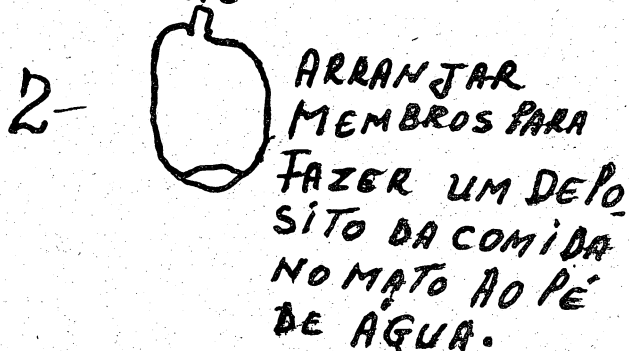 2-
ARRANJAR
MEMBROS PARA
FAZER UM DEPO_
SITO DA COMIDA
NO MATO AO PÉ
DE ÁGUA.